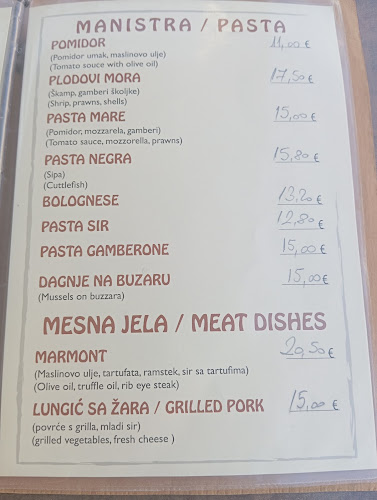 MANISTRA / PASTA
POMIDOR 11,00 €
(Pomidor umak, maslinovo ulje)
(Tomato souce with olive oil)
PLODOVI MORA 17,50 €
(Škamp, gamberi školjke)
(Shrip, prawns, shells)
PASTA MARE 15,00 €
(Pomidor, mozzarela, gamberi)
(Tomato sauce, mozzorella, prawns)
PASTA NEGRA 15,80 €
(Sipa)
(Cuttlefish)
BOLOGNESE 13,20 €
PASTA SIR 12,80 €
PASTA GAMBERONE 15,00 €
DAGNJE NA BUZARU 15,00 €
(Mussels on buzzara)
MESNA JELA / MEAT DISHES
MARMONT 20,50 €
(Maslinovo ulje, tartufata, ramstek, sir sa tartufima)
(Olive oil, truffle oil, rib eye steak)
LUNGIĆ SA ŽARA / GRILLED PORK 15,00 €
(povrće s grilla, mladi sir)
(grilled vegetables, fresh cheese )